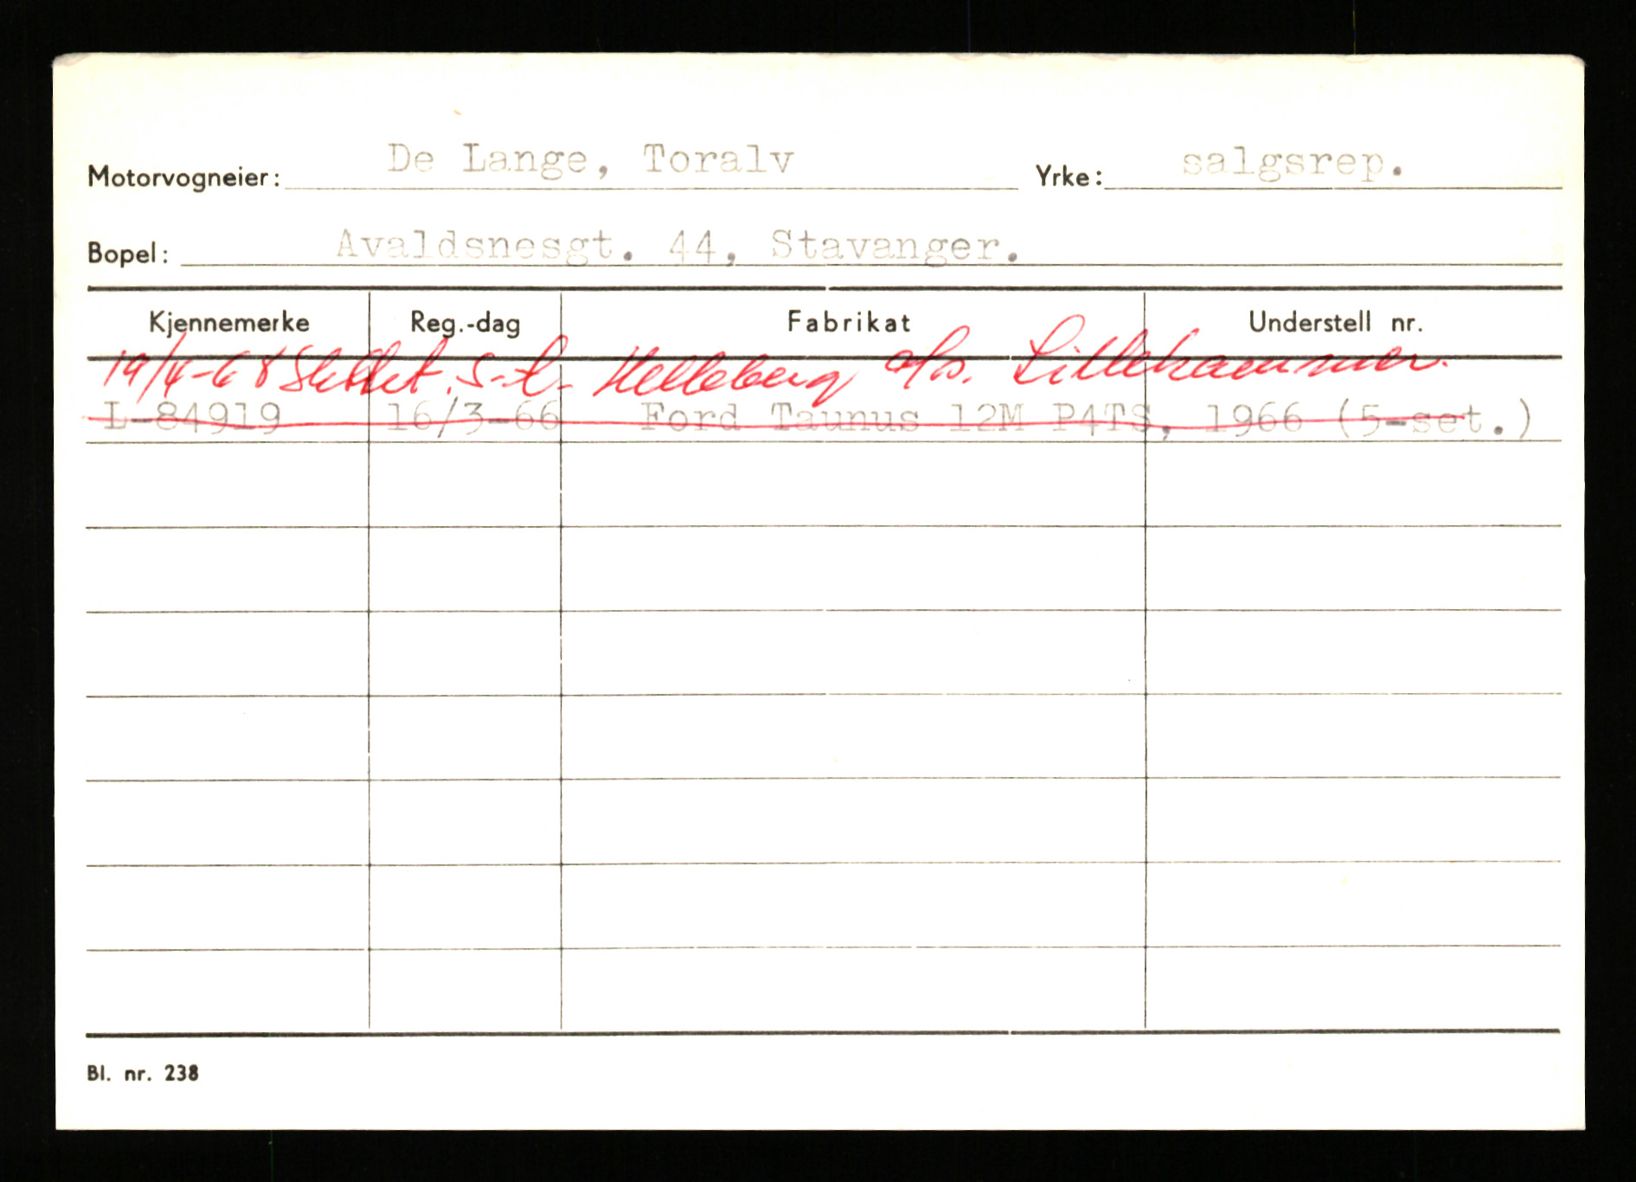 Motorvogneier: De Lange, Toralv Yrke: salgsrep.
Bopel: Avaldsnesgt. 44, Stavanger.
Kjennemerke Reg.-dag Fabrikat Understell nr.
19/4-68 Slettet. S-t- Helleberg a/s. Lillehammer.
L-84919 16/3-66 Ford Taunus 12M P4TS, 1966 (5-set.)
Bl. nr. 238